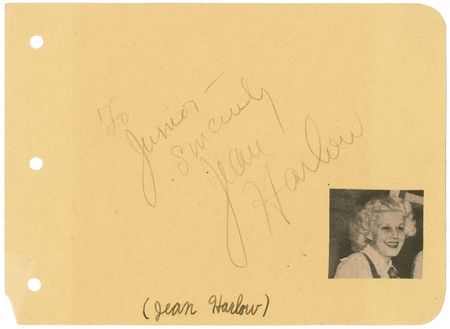 To
Junior
Sincerely
Jean
Harlow
(Jean Harlow)